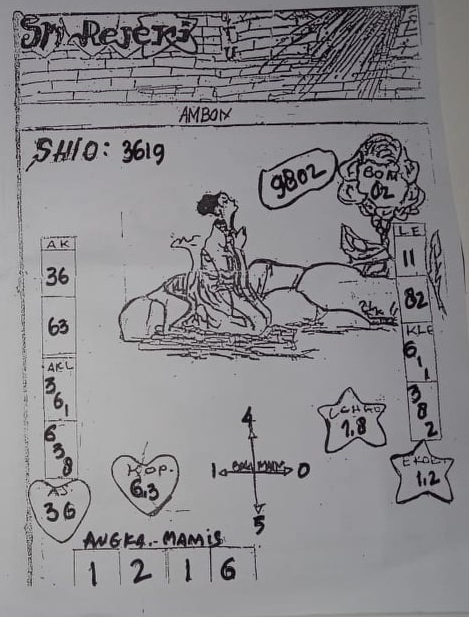 Sri Rejeki
AMBON
SHIO: 3619
9802
BOM
02
AK
36
63
AKL
3
6
1
6
3
8
AS
36
KOP.
6.3
LE
11
82
KLE
6
1
1
3
8
2
EKOR
1.2
1.8
4
1
BOLA MAIN
0
5
ANGKA-MAMIS
1 2 1 6